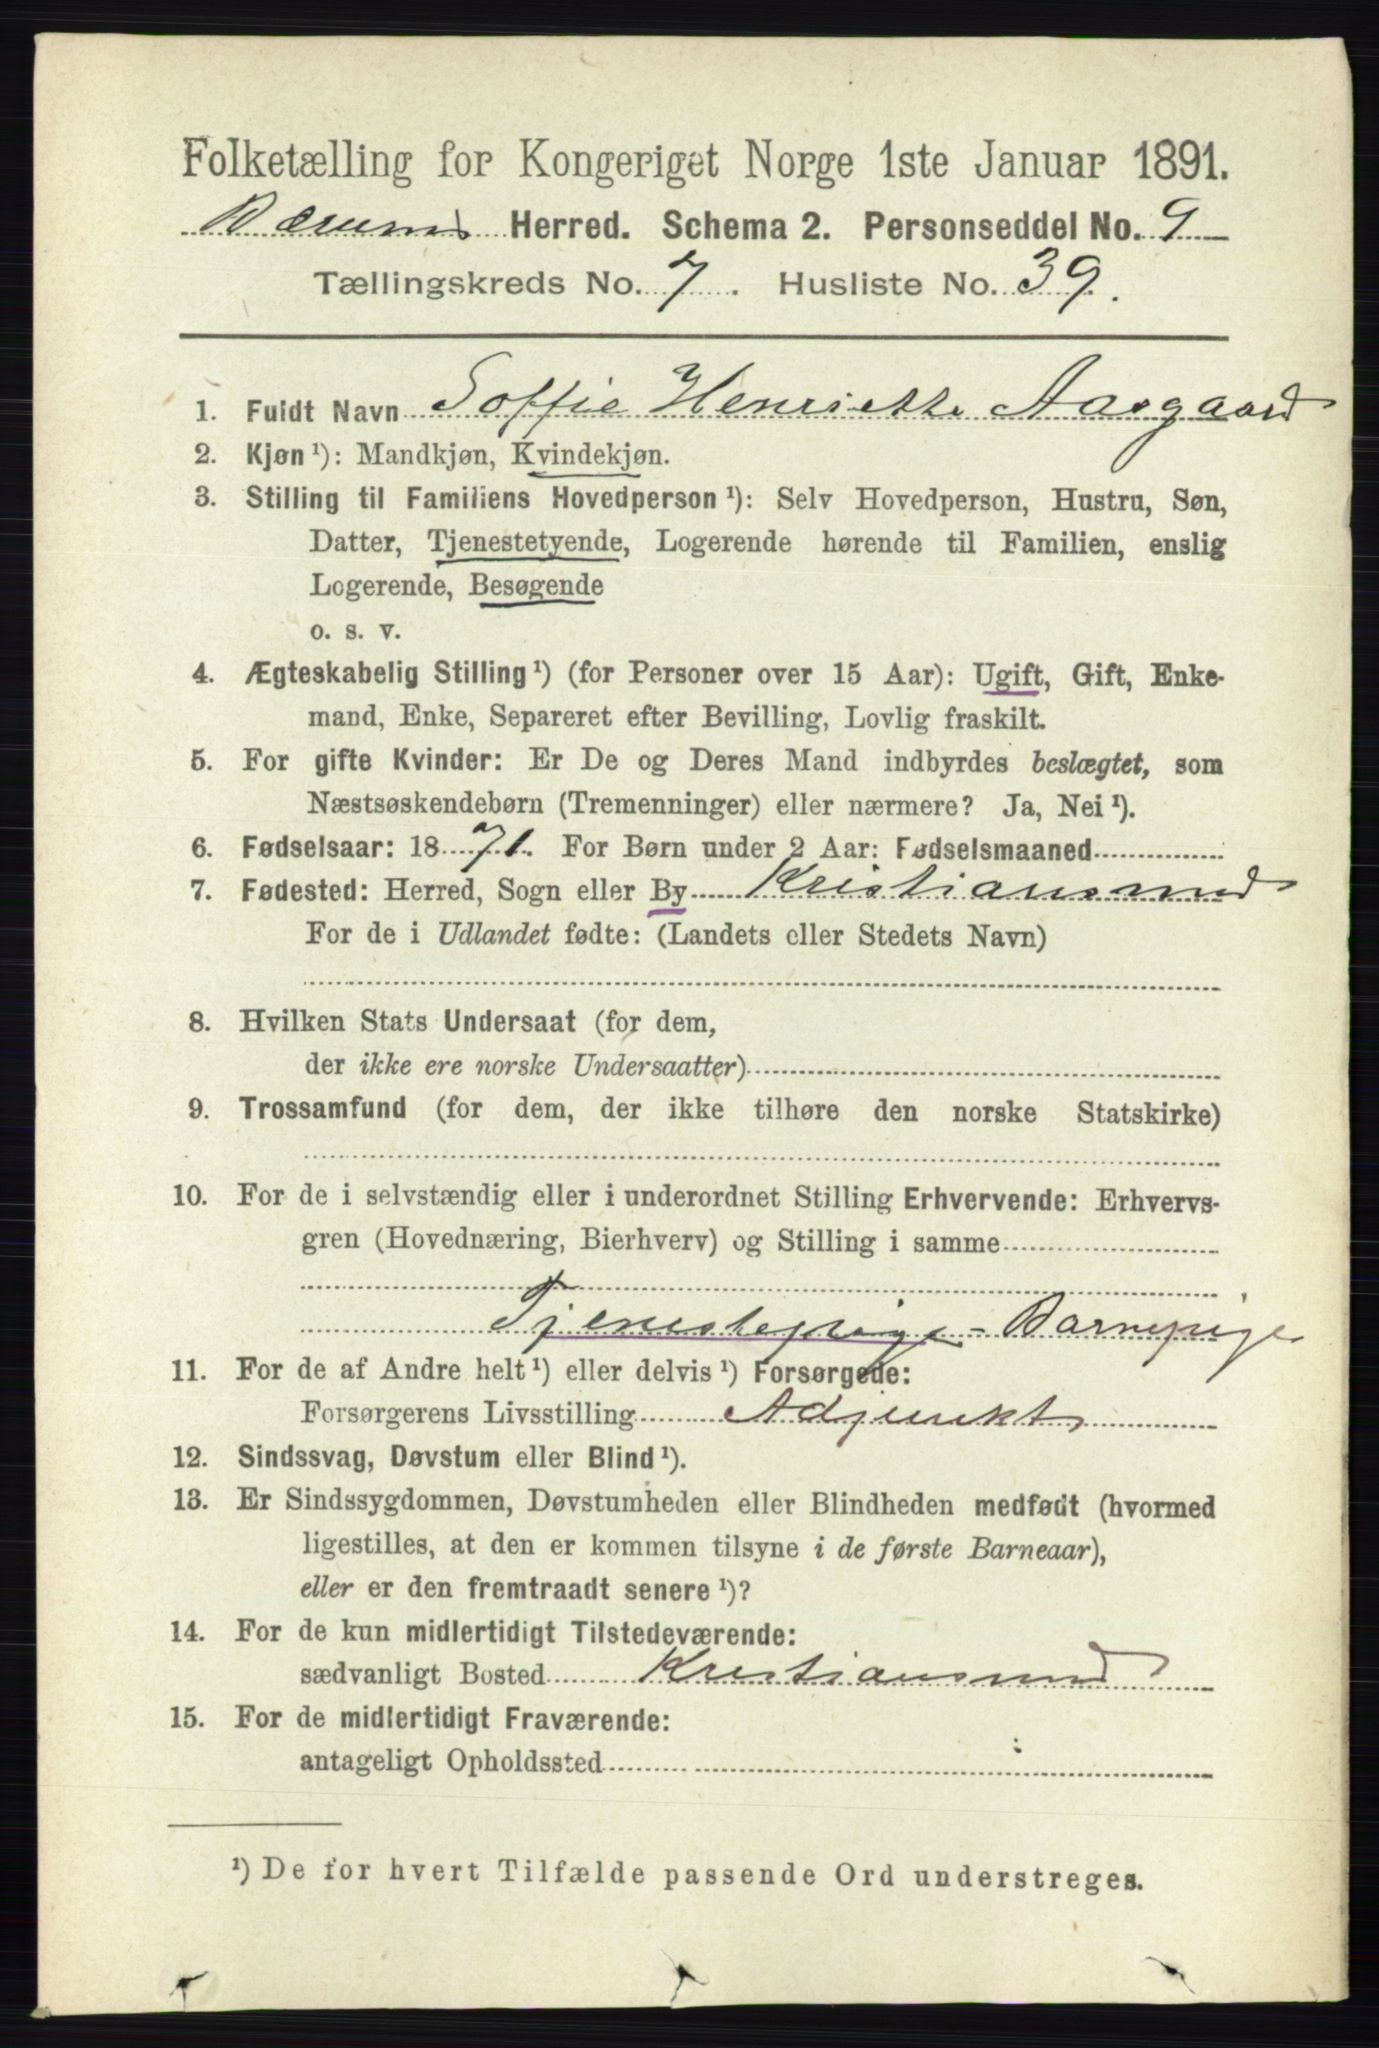 Folketælling for Kongeriget Norge 1ste Januar 1891.
Bærums Herred. Schema 2. Personseddel No. 9
Tællingskreds No. 7. Husliste No. 39.
1. Fuldt Navn Soffie Henriette Aasgaard
2. Kjøn ¹): Mandkjøn, Kvindekjøn.
3. Stilling til Familiens Hovedperson ¹): Selv Hovedperson, Hustru, Søn,
Datter, Tjenestetyende, Logerende hørende til Familien, enslig
Logerende, Besøgende
o. s. v.
4. Ægteskabelig Stilling ¹) (for Personer over 15 Aar): Ugift, Gift, Enke-
mand, Enke, Separeret efter Bevilling, Lovlig fraskilt.
5. For gifte Kvinder: Er De og Deres Mand indbyrdes beslægtet, som
Næstsøskendebørn (Tremenninger) eller nærmere? Ja, Nei ¹).
6. Fødselsaar: 1871. For Børn under 2 Aar: Fødselsmaaned
7. Fødested: Herred, Sogn eller By Kristiansund
For de i Udlandet fødte: (Landets eller Stedets Navn)
8. Hvilken Stats Undersaat (for dem,
der ikke ere norske Undersaatter)
9. Trossamfund (for dem, der ikke tilhøre den norske Statskirke)
10. For de i selvstændig eller i underordnet Stilling Erhvervende: Erhvervs-
gren (Hovednæring, Bierhverv) og Stilling i samme
Tjenestepige - Barnepige
11. For de af Andre helt ¹) eller delvis ¹) Forsørgede:
Forsørgerens Livsstilling Adjunkt
12. Sindssvag, Døvstum eller Blind ¹).
13. Er Sindssygdommen, Døvstumheden eller Blindheden medfødt (hvormed
ligestilles, at den er kommen tilsyne i de første Barneaar),
eller er den fremtraadt senere ¹)?
14. For de kun midlertidigt Tilstedeværende:
sædvanligt Bosted Kristiansund
15. For de midlertidigt Fraværende:
antageligt Opholdssted
¹) De for hvert Tilfælde passende Ord understreges.